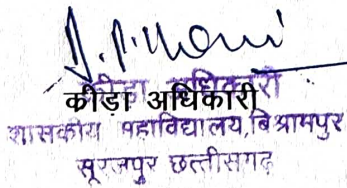 क्रीड़ा अधिकारी
कीड़ा अधिकारी
शासकीय महाविद्यालय, बिश्रामपुर
सूरजपुर छत्तीसगढ़